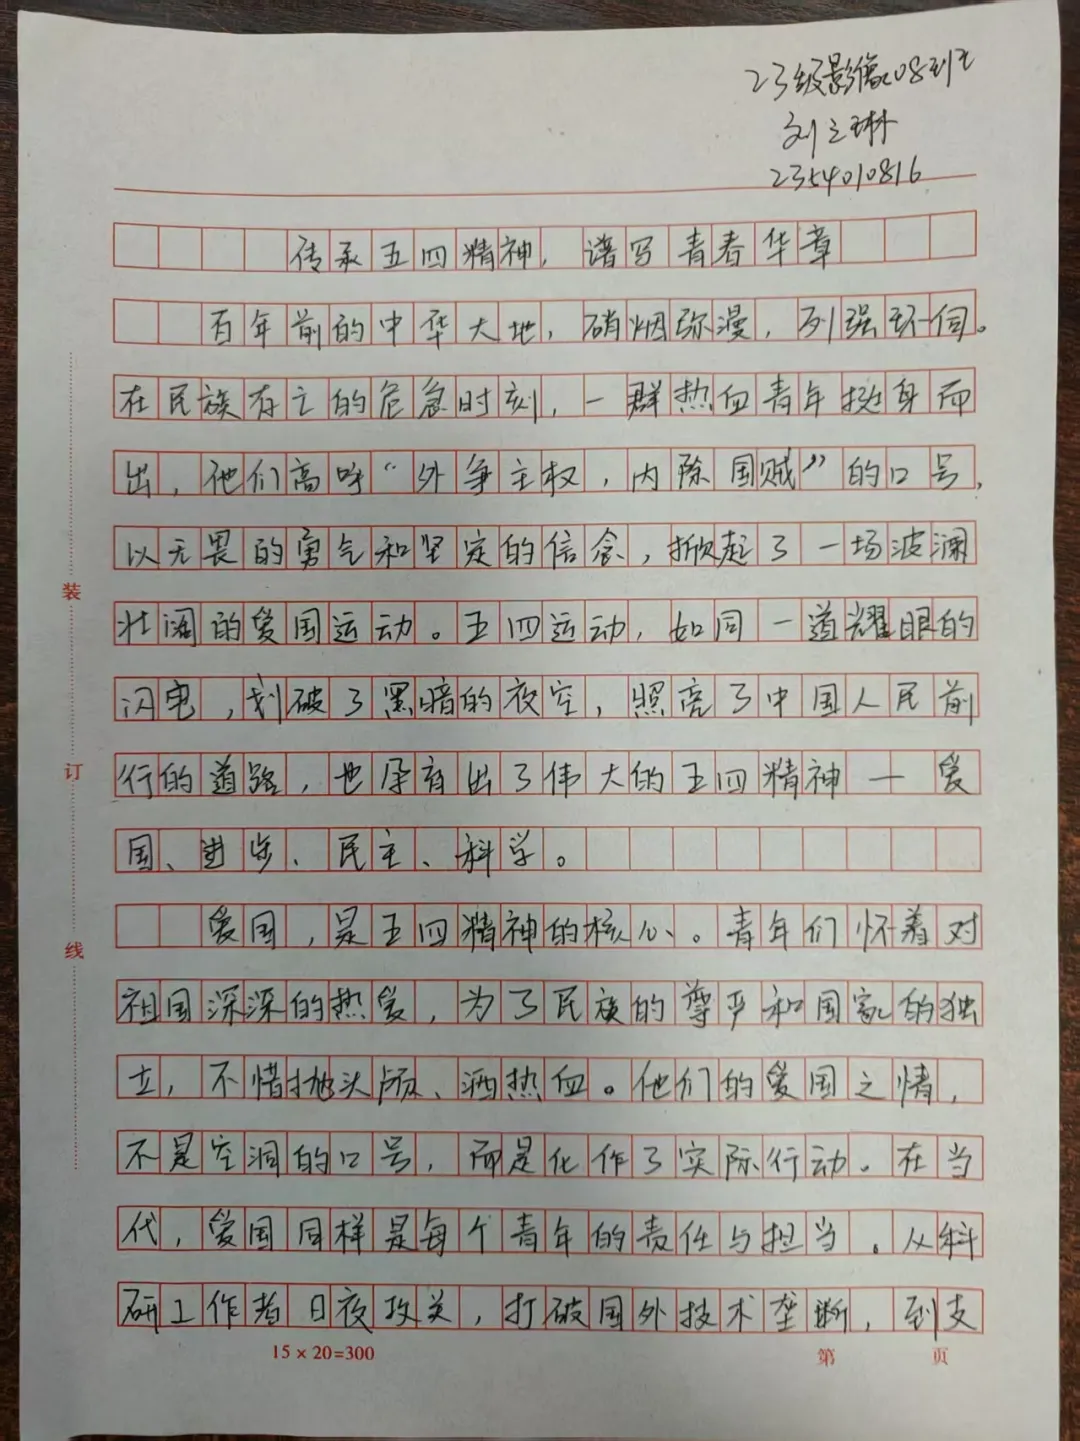 23级影像08班
刘立琳
2354010816
传承五四精神，谱写青春华章
百年前的中华大地，硝烟弥漫，列强环伺。
在民族存亡的危急时刻，一群热血青年挺身而
出，他们高呼“外争主权，内除国贼”的口号，
以无畏的勇气和坚定的信念，掀起了一场波澜
壮阔的爱国运动。五四运动，如同一道耀眼的
闪电，划破了黑暗的夜空，照亮了中国人民前
行的道路，也孕育出了伟大的五四精神一爱
国、进步、民主、科学。
爱国，是五四精神的核心。青年们怀着对
祖国深深的热爱，为了民族的尊严和国家的独
立，不惜抛头颅、洒热血。他们的爱国之情，
不是空洞的口号，而是化作了实际行动。在当
代，爱国同样是每个青年的责任与担当。从科
研工作者日夜攻关，打破国外技术垄断，到支
装
订
线
15×20=300
第 页